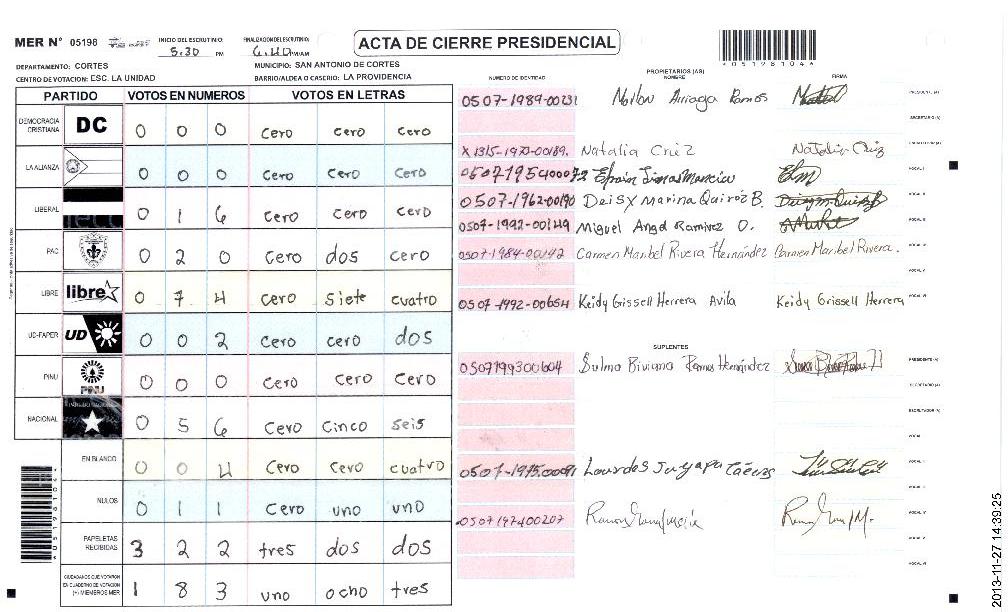 MER Nº 05198
INICIO DEL ESCRUTINIO: 5:30 PM
FINALIZACION DEL ESCRUTINIO: 6:40 PM/AM
ACTA DE CIERRE PRESIDENCIAL
*05198104*
DEPARTAMENTO: CORTES
MUNICIPIO: SAN ANTONIO DE CORTES
CENTRO DE VOTACION: ESC. LA UNIDAD
BARRIO/ALDEA O CASERIO: LA PROVIDENCIA
PARTIDO VOTOS EN NUMEROS VOTOS EN LETRAS
DEMOCRACIA CRISTIANA DC 0 0 0 cero cero cero
LA ALIANZA 0 0 0 cero cero cero
LIBERAL 0 1 6 cero cero cero
PAC 0 2 0 cero dos cero
LIBRE libre 0 7 4 cero siete cuatro
UD-FAPER UD 0 0 2 cero cero dos
PINU PINU 0 0 0 cero cero cero
NACIONAL 0 5 6 cero cinco seis
EN BLANCO 0 0 4 cero cero cuatro
NULOS 0 1 1 cero uno uno
PAPELETAS RECIBIDAS 3 2 2 tres dos dos
CIUDADANOS QUE VOTARON EN CUADERNO DE VOTACION (+) MIEMBROS MER 1 8 3 uno ocho tres
*05198104*
PROPIETARIOS (AS)
NUMERO DE IDENTIDAD NOMBRE FIRMA
0507-1989-00231 Arriaga Ramos PRESIDENTE (A)
SECRETARIO (A)
X1315-1973-00189. Natalia Cruz Natalia Cruz
0507195400072 VOCAL I
0507-1962-00190 Deisy Marina Quiroz B.
0507-1992-00149 Miguel Angel Ramirez O.
0507-1984-00142 Carmen Maribel Rivera Hernández Carmen Maribel Rivera.
0507-1992-00654 Keidy Grissell Herrera Avila Keidy Grissell Herrera
SUPLENTES
0507199300604 Sulma Biviana Ramos Hernández PRESIDENTE (A)
SECRETARIO (A)
0507-1975-00091 Lourdes
0507197400207
2013-11-27 14:39:25